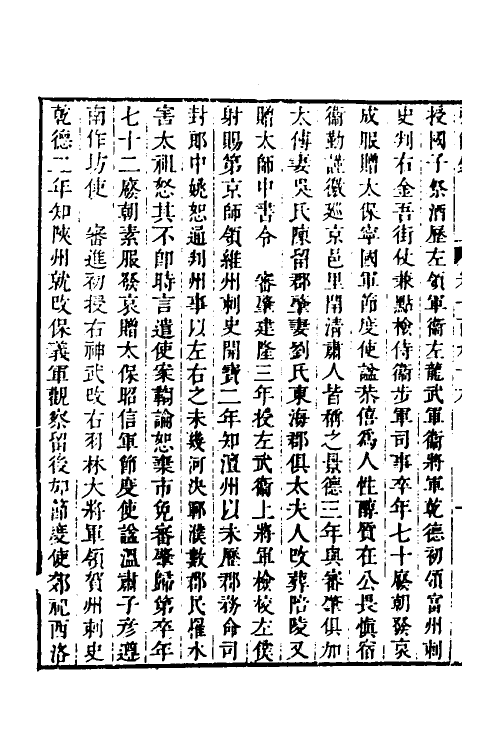 授國子祭酒歷左領軍衞左龍武軍衞將軍乾德初領富州刺
史判右金吾街仗兼點檢侍衞步軍司事卒年七十廢朝發哀
成服贈太保寧國軍節度使諡恭僖為人性醇質在公畏慎宿
衞勤謹徼廵京邑里閈清肅人皆稱之景德三年與審肇俱加
太傅妻吳氏陳留郡肇妻劉氏東海郡俱太夫人改葬陪陵又
贈太師中書令 審肇建隆三年授左武衞上將軍檢校左僕
射賜第京師領維州刺史開寶二年知澶州以未歷郡務命司
封郎中姚恕通判州事以左右之未幾河決鄆濮數郡民罹水
害太祖怒其不卽時言遣使案鞫論恕棄市免審肇歸第卒年
七十二廢朝素服發哀贈太保昭信軍節度使諡溫肅子彥遵
南作坊使 審進初授右神武改右羽林大將軍領賀州刺史
乾德二年知陝州就改保義軍觀察留後加節度使郊祀西洛